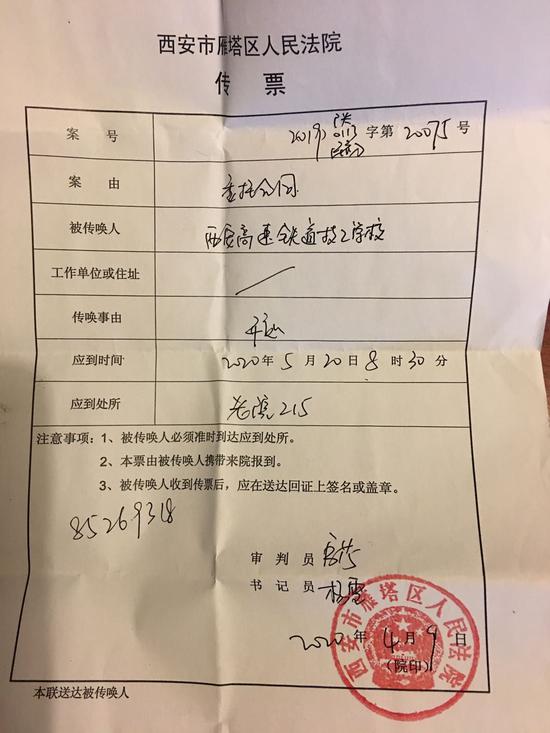 西安市雁塔区人民法院
传票
案号 2019 陕0113民初 字第 20075 号
案由 委托合同
被传唤人 西安高速铁道技工学校
工作单位或住址 /
传唤事由 开庭
应到时间 2020年5月20日8时30分
应到处所 老院215
注意事项:1、被传唤人必须准时到达应到处所。
2、本票由被传唤人携带来院报到。
3、被传唤人收到传票后,应在送达回证上签名或盖章。
85269318
审判员
书记员 杨雪
2020年4月9日
(院印)
西安市雁塔区人民法院
本联送达被传唤人